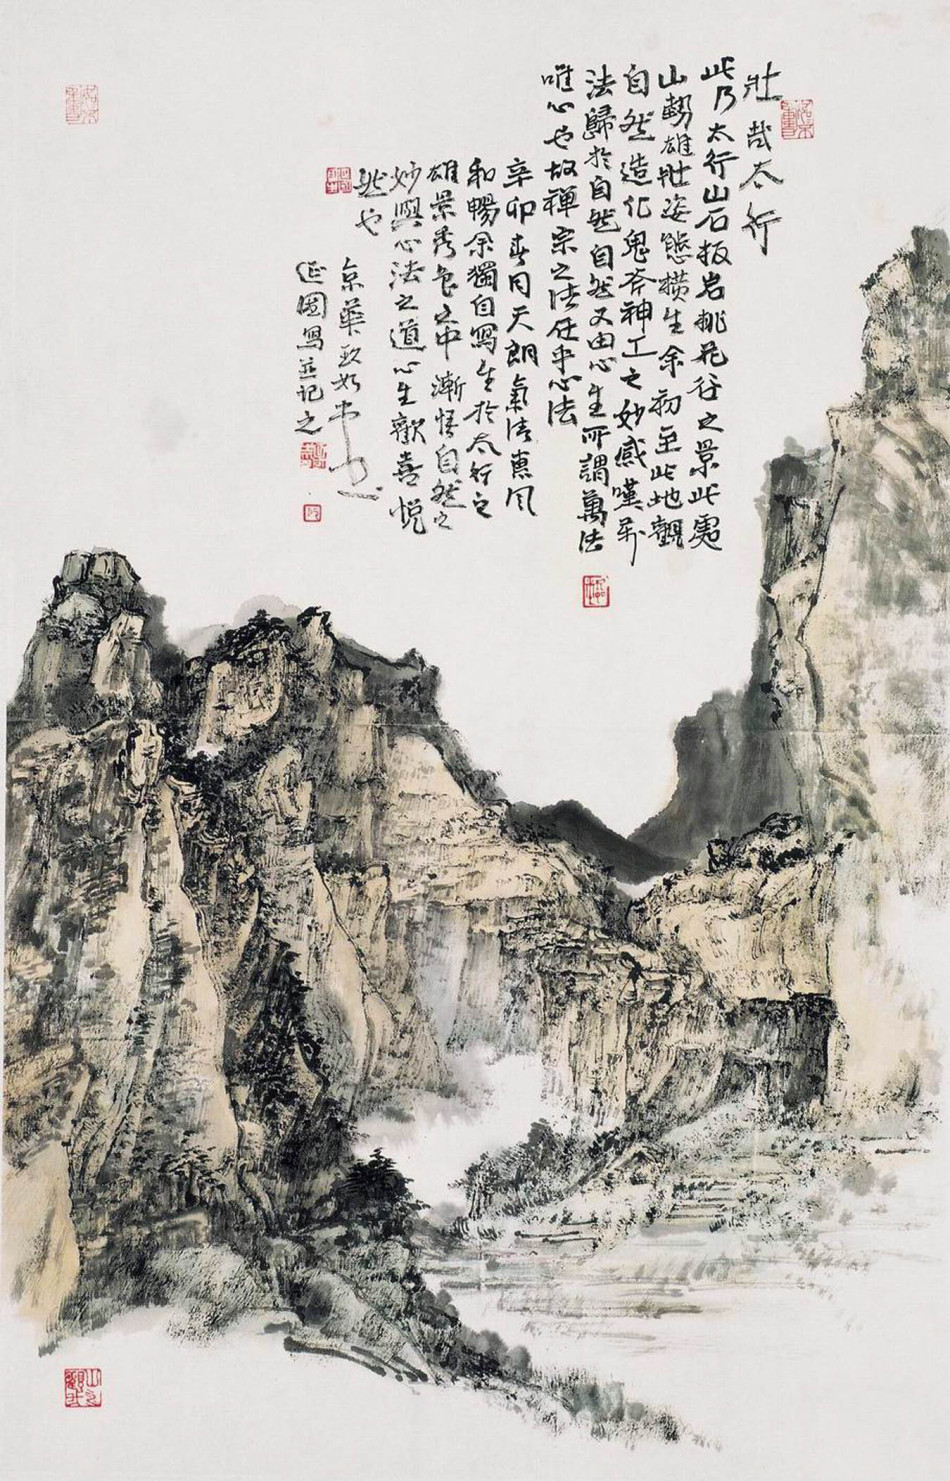 壯哉太行
此乃太行山石板岩桃花谷之景此處
山勢雄壯姿態橫生余初至此地觀
自然造化鬼斧神工之妙感嘆萬
法歸於自然自然又由心生所謂萬法
唯心也故禪宗之法任乎心法
辛卯春月天朗氣清惠风
和暢余獨自寫生於太行之
雄景秀色之中漸悟自然之
妙與心法之道心生歡喜悅
然也
京華
延國寫並記之